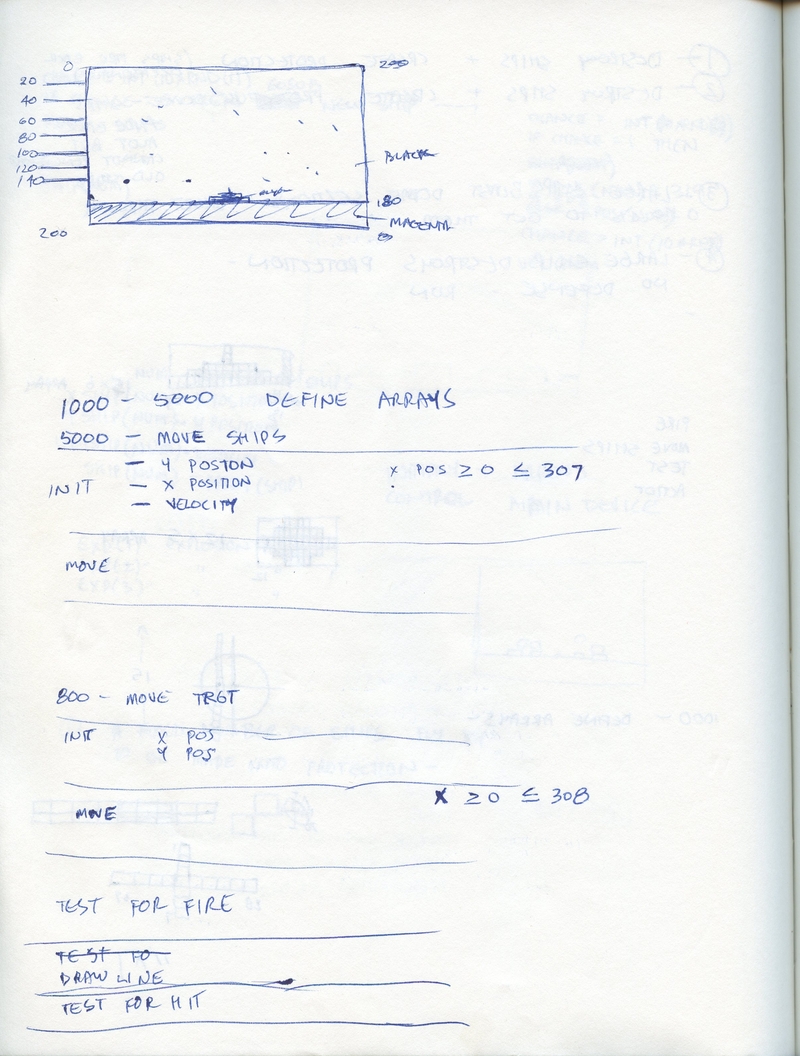 0 200
20
40
60
80
100
120
140
BLACK
180
MAGENTA
200 0
1000 - 5000 DEFINE ARRAYS
5000 - MOVE SHIPS
INIT
- Y POSTON
- X POSITION
- VELOCITY
X POS ≥ 0 ≤ 307
MOVE
800 - MOVE TRGT
INIT X POS
Y POS
X ≥ 0 ≤ 308
MOVE
TEST FOR FIRE
TEST TO
DRAW LINE
TEST FOR HIT